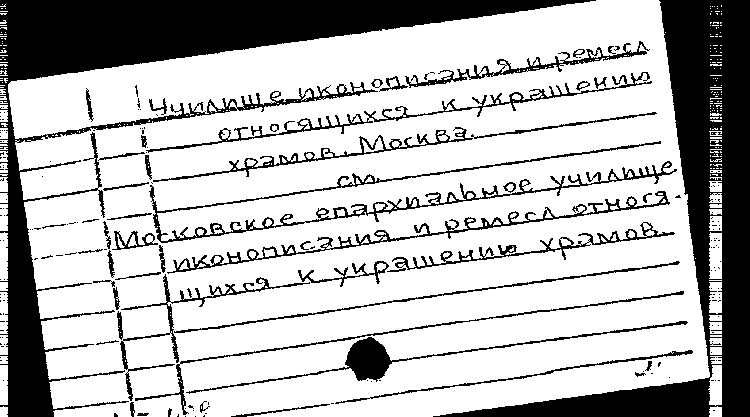 Училище иконописания и ремесл
относящихся к украшению
храмов. Москва.
см.
Московское епархиальное училище
иконописания и ремесл относя-
щихся к украшению храмов.